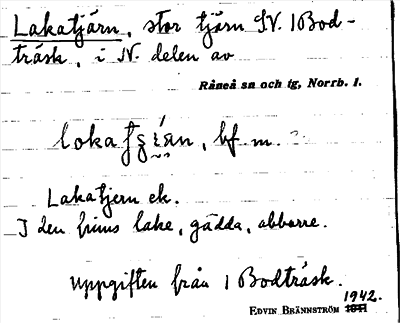 Lakatjärn, stor tjärn SV. 1 Bod-
träsk, i N. delen av
Råneå sn och tg, Norrb. l.
bf. m.
Lakatjern ek.
I den finns lake, gädda, abborre.
Uppgiften från 1 Bodträsk.
1942.
EDVIN BRÄNNSTRÖM 1941